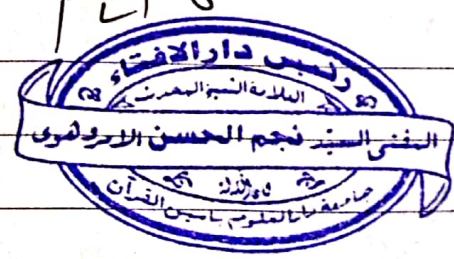 رئيس دار الافتاء
العلامة الشيخ المحدث
المفتی السيّد نجم الحسن الامروهوی
جامعة دار العلوم ياسين القرآن